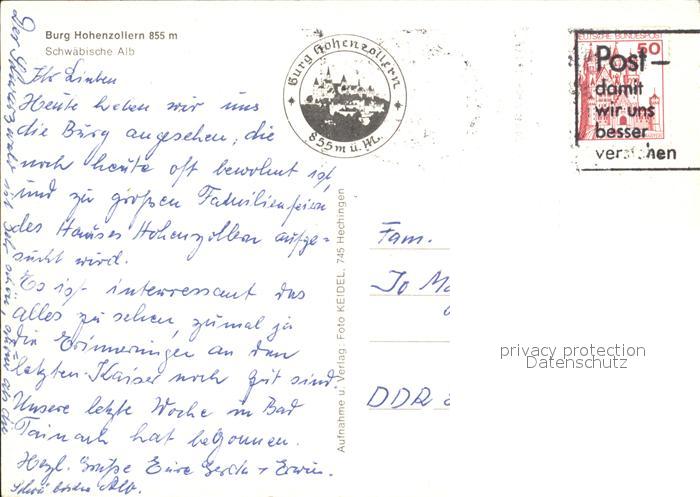 Burg Hohenzollern 855 m
Schwäbische Alb
Ihr Lieben
Heute haben wir uns
die Burg angesehen, die
noch heute oft bewohnt ist
und zu großen Familienfeiern
des Hauses Hohenzollern aufge-
sucht wird.
Es ist interessant das
alles zu sehen, zumal ja
die Erinnerungen an den
letzten Kaiser noch gut sind.
Unsere letzte Woche in Bad
Teinach hat begonnen.
Herzl. Grüße Eure Gerda + Erwin.
Alb.
Der Schwarzwald ist
Burg Hohenzollern
855 m ü. M.
Aufnahme u. Verlag: Foto KEIDEL, 745 Hechingen
DEUTSCHE BUNDESPOST
50
Post –
damit
wir uns
besser
verstehen
Fam.
DDR
privacy protection
Datenschutz